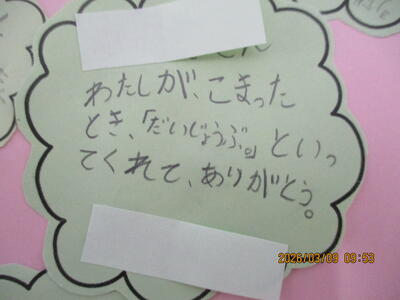 わたしが、こまった
とき、「だいじょうぶ。」といっ
てくれて、ありがとう。
2026/03/09 09:53